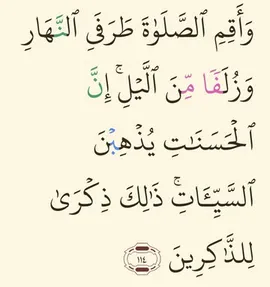 وَأَقِمِ ٱلصَّلَوٰةَ طَرَفَيِ ٱلنَّهَارِ
وَزُلَفٗا مِّنَ ٱلَّيۡلِۚ إِنَّ
ٱلۡحَسَنَٰتِ يُذۡهِبۡنَ
ٱلسَّيِّـَٔاتِۚ ذَٰلِكَ ذِكۡرَىٰ
لِلذَّٰكِرِينَ ١١٤